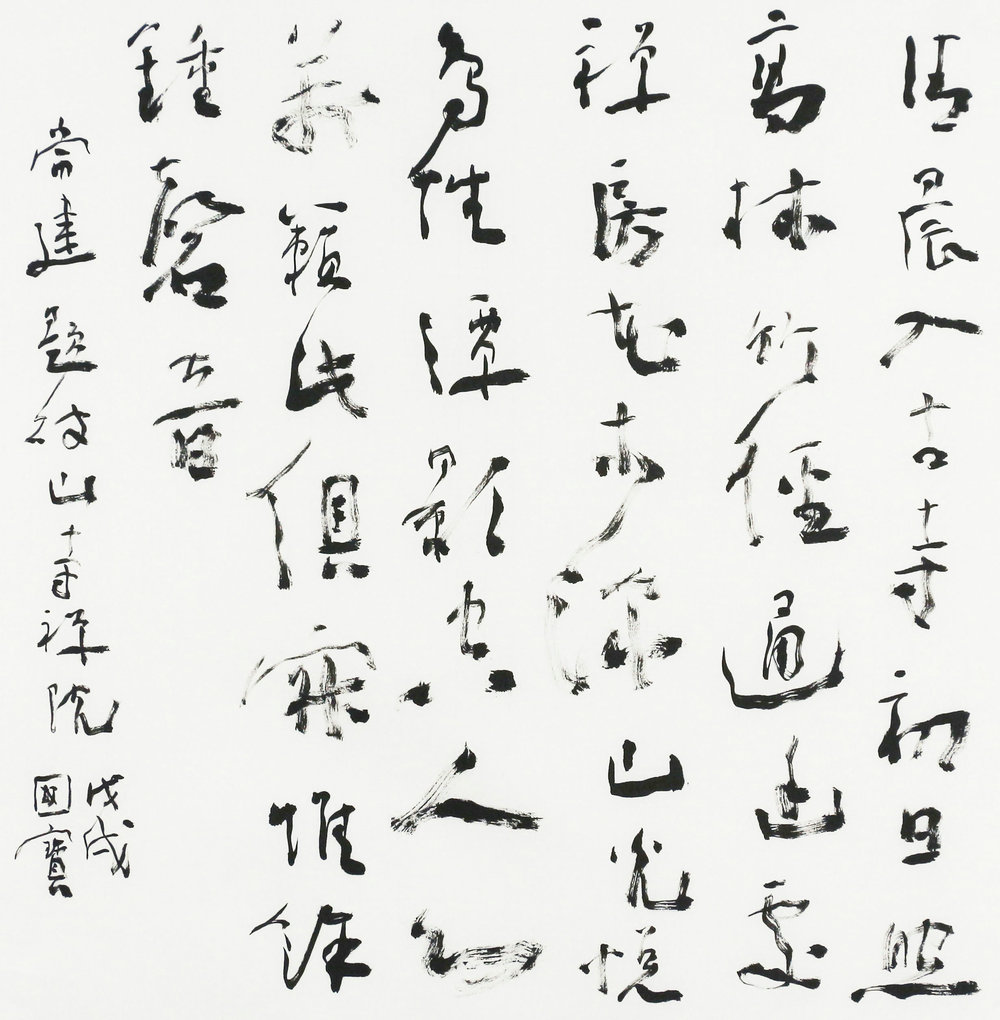 清晨入古寺初日照
高林竹径通幽處
禪房花木深山光悅
鳥性潭影空人心
萬籟此俱寂惟餘
鍾磬音
常建題破山寺禪院
戊戌
國寶